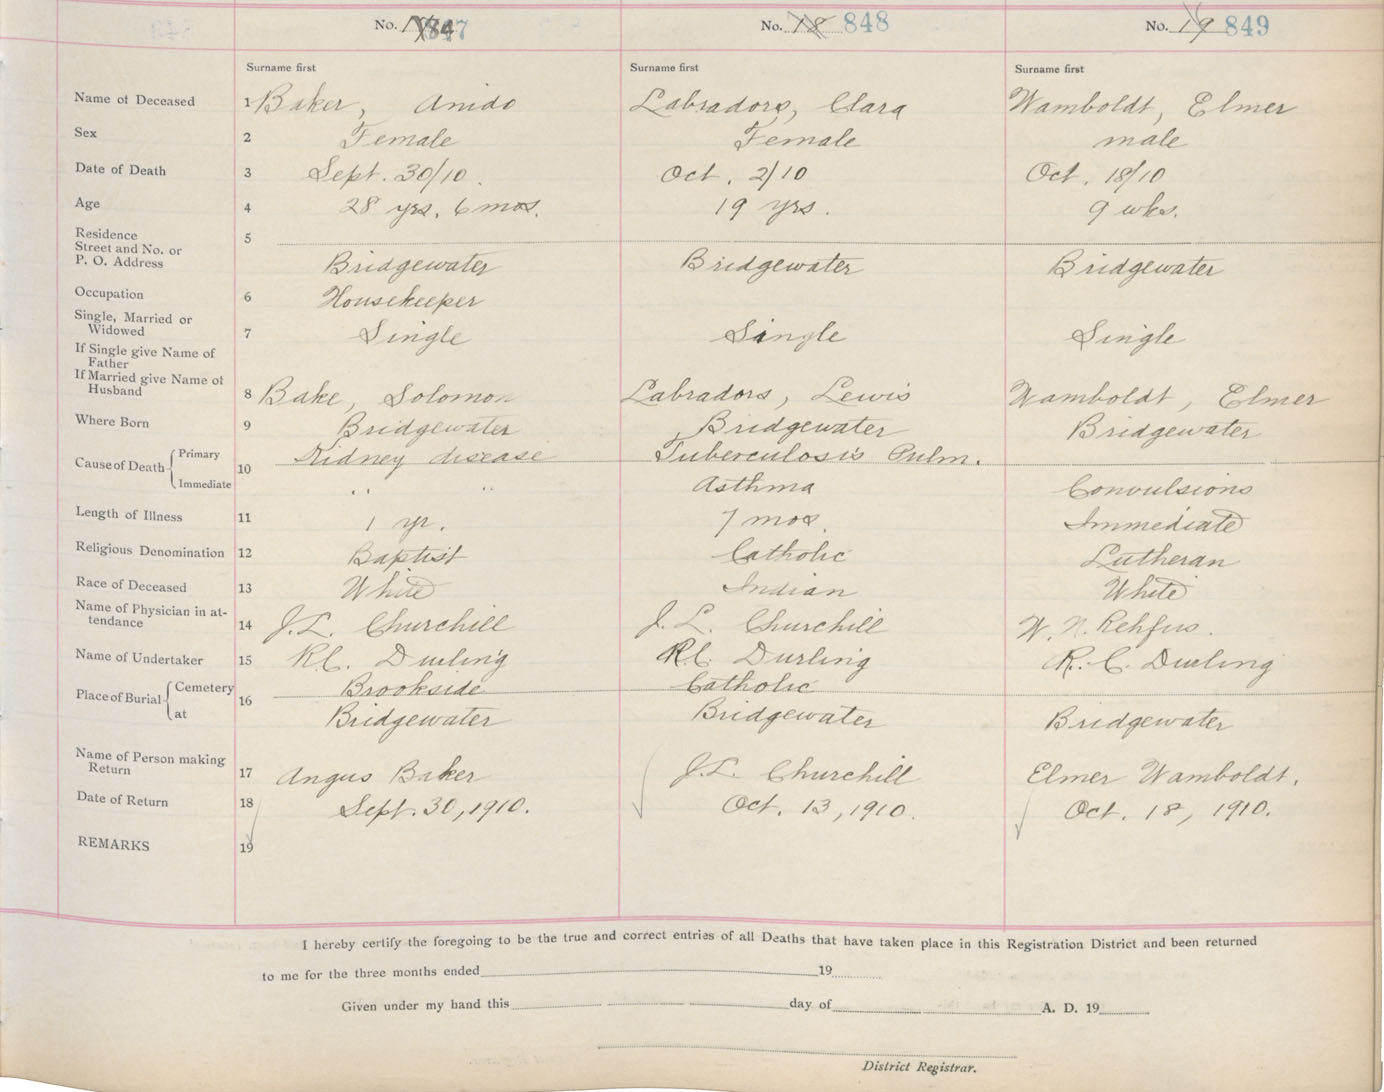 No. 847 No. 18 848 No. 19 849
Surname first Surname first Surname first
Name of Deceased 1 Baker, Anido Labradors, Clara Wamboldt, Elmer
Sex 2 Female Female male
Date of Death 3 Sept. 30/10. Oct. 2/10 Oct. 18/10
Age 4 28 yrs. 6 mos. 19 yrs. 9 wks.
Residence 5
Street and No. or
P. O. Address Bridgewater Bridgewater Bridgewater
Occupation 6 Housekeeper
Single, Married or
Widowed 7 Single Single Single
If Single give Name of
Father
If Married give Name of
Husband 8 Bake, Solomon Labradors, Lewis Wamboldt, Elmer
Where Born 9 Bridgewater Bridgewater Bridgewater
Cause of Death 10 Primary Kidney disease Tuberculosis Pulm.
Immediate " " Asthma Convulsions
Length of Illness 11 1 yr. 7 mos. Immediate
Religious Denomination 12 Baptist Catholic Lutheran
Race of Deceased 13 White Indian White
Name of Physician in at-
tendance 14 J.L. Churchill J.L. Churchill W.N. Rehfus.
Name of Undertaker 15 R.C. Durling R.C. Durling R.C. Durling
Place of Burial 16 Cemetery Brookside Catholic
at Bridgewater Bridgewater Bridgewater
Name of Person making
Return 17 Angus Baker J.L. Churchill Elmer Wamboldt.
Date of Return 18 Sept. 30, 1910. Oct. 13, 1910. Oct. 18, 1910.
REMARKS 19
I hereby certify the foregoing to be the true and correct entries of all Deaths that have taken place in this Registration District and been returned
to me for the three months ended 19
Given under my hand this day of A. D. 19
District Registrar.